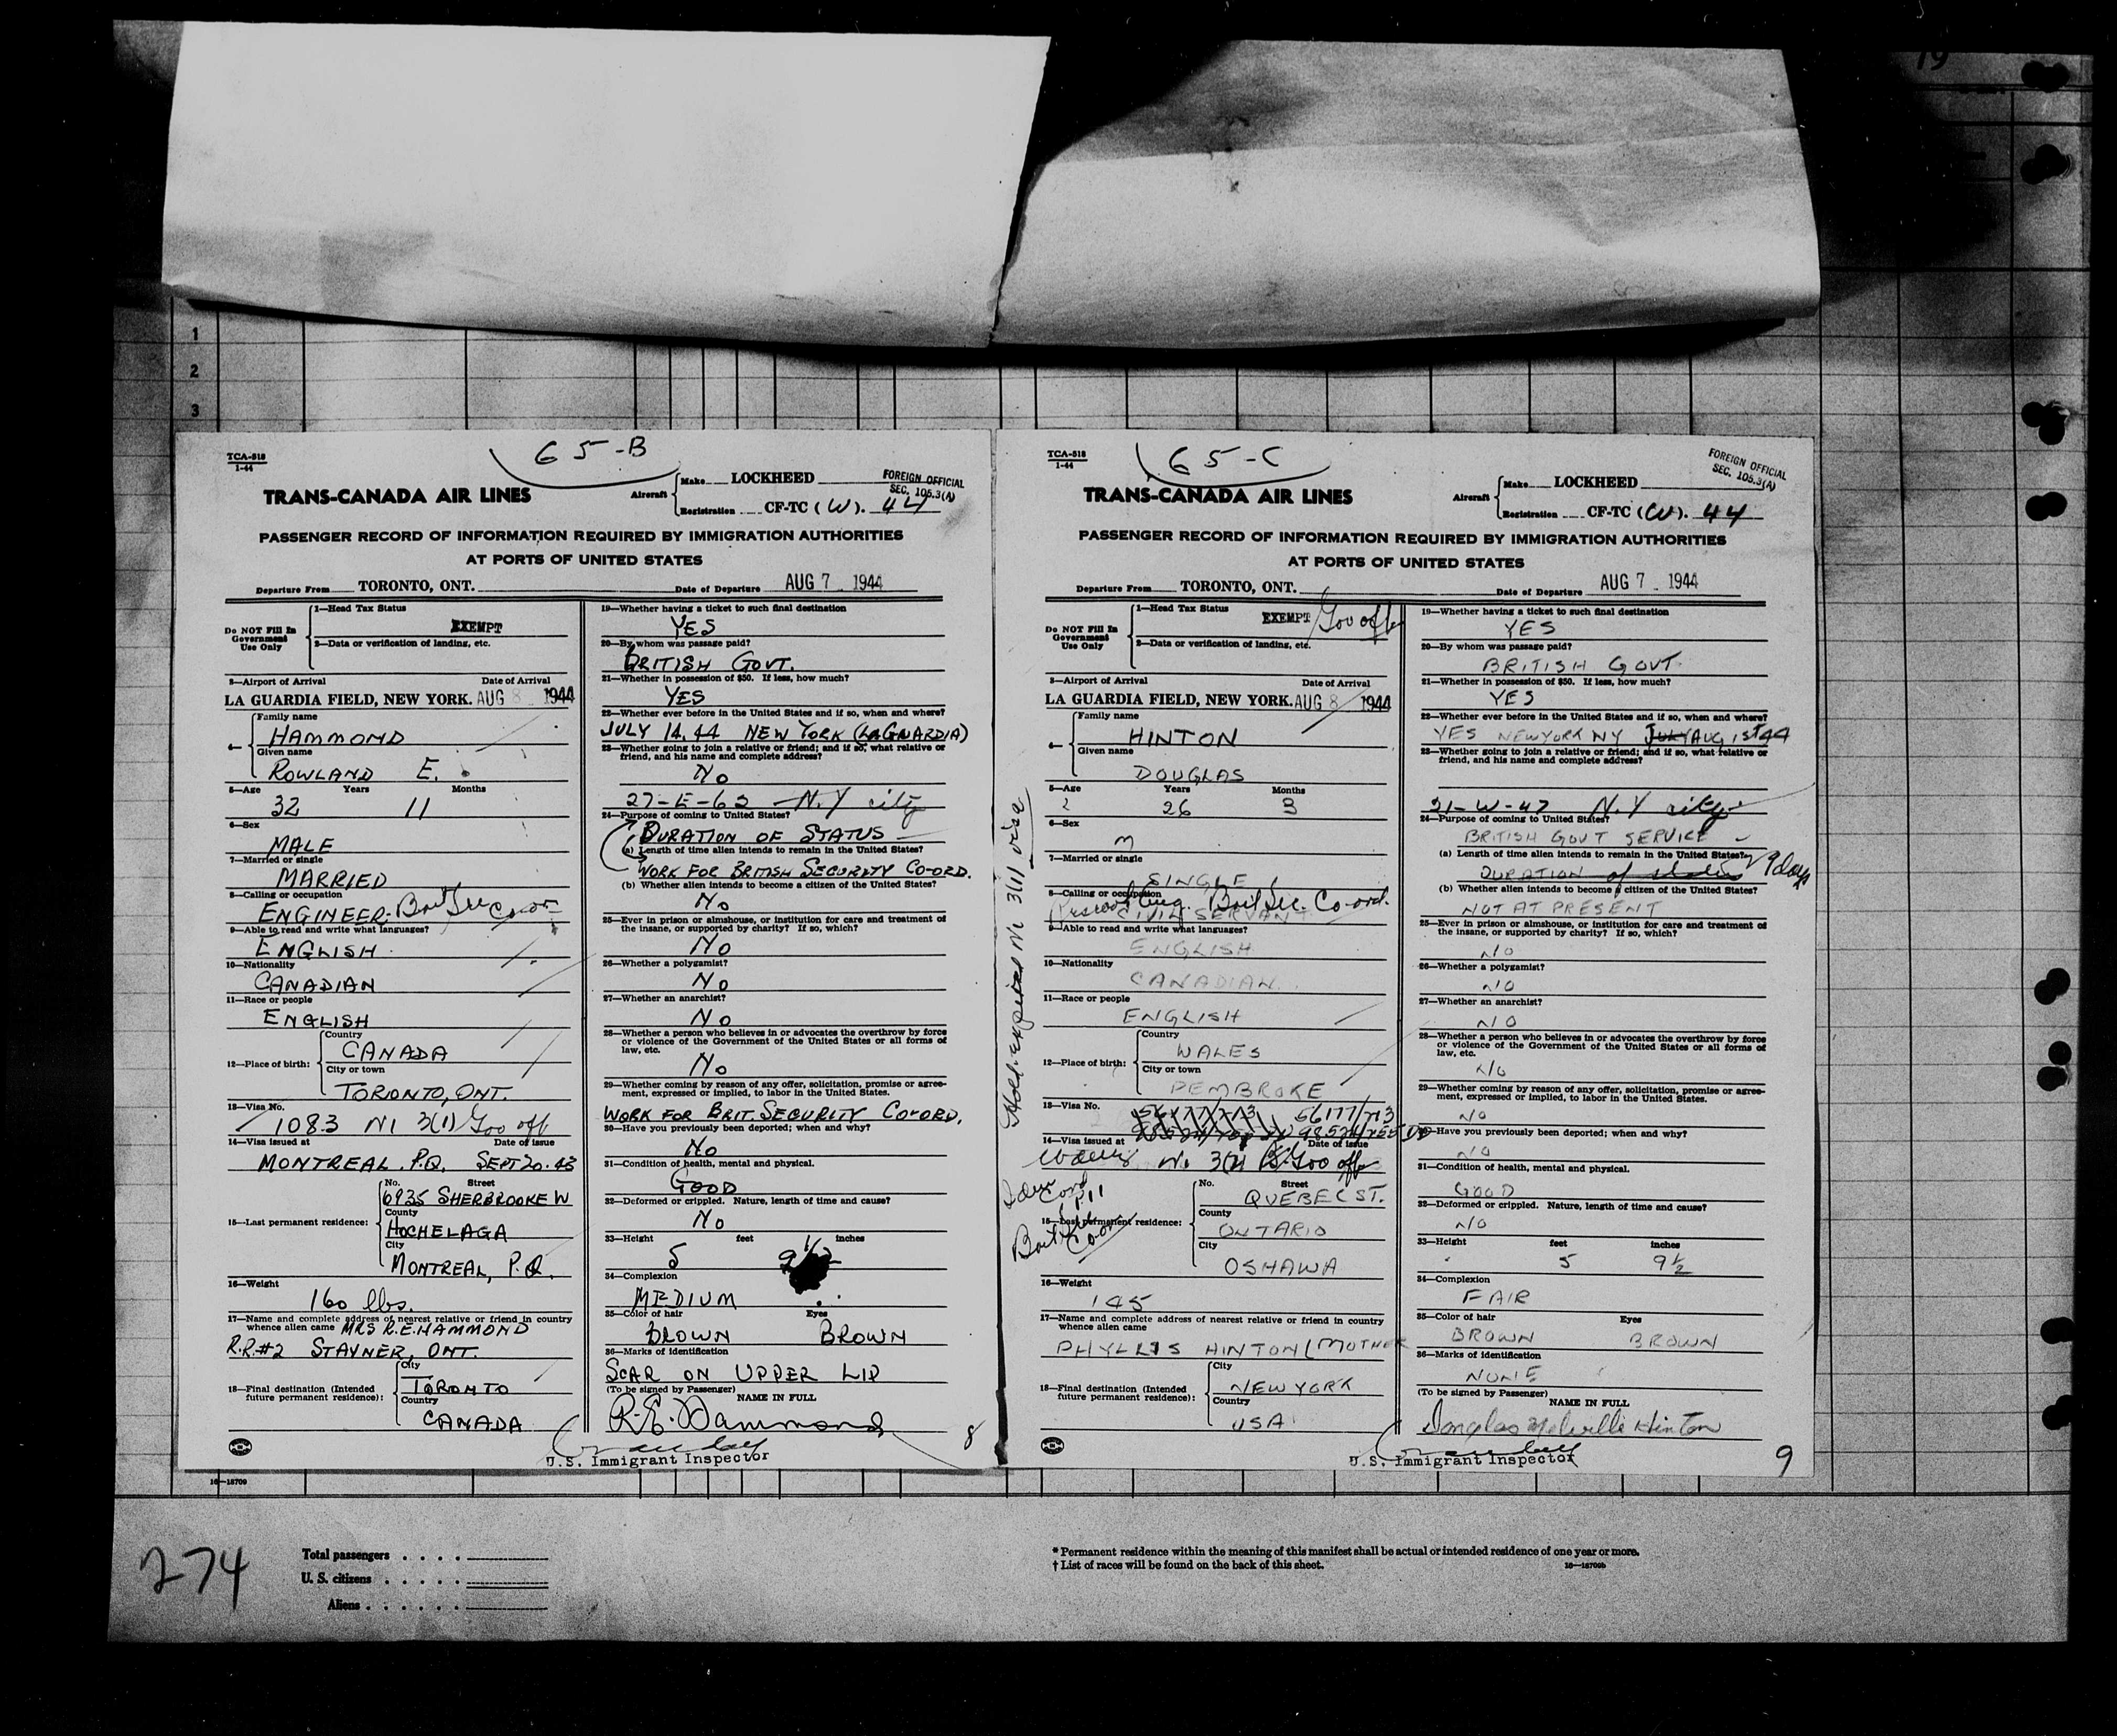 19
1
2
3
65-B
TCA-518
1-44
TRANS-CANADA AIR LINES
Aircraft
Make LOCKHEED
Registration CF-TC (W). 44
FOREIGN OFFICIAL
SEC. 105.3(A)
PASSENGER RECORD OF INFORMATION REQUIRED BY IMMIGRATION AUTHORITIES
AT PORTS OF UNITED STATES
Departure From TORONTO, ONT. Date of Departure AUG 7 1944
Do NOT Fill In
Government
Use Only
1—Head Tax Status
EXEMPT
2—Data or verification of landing, etc.
3—Airport of Arrival Date of Arrival
LA GUARDIA FIELD, NEW YORK. AUG 8 1944
4—
Family name
HAMMOND
Given name
ROWLAND E.
5—Age Years Months
32 11
6—Sex
MALE
7—Married or single
MARRIED
8—Calling or occupation
ENGINEER- Brit Sec Co-or
9—Able to read and write what languages?
ENGLISH
10—Nationality
CANADIAN
11—Race or people
ENGLISH
12—Place of birth:
Country
CANADA
City or town
TORONTO, ONT.
13—Visa No.
1083 NI 3(1) Gov off
14—Visa issued at Date of issue
MONTREAL. P.Q. SEPT 20. 43
15—Last permanent residence:
No. Street
6935 SHERBROOKE W
County
HOCHELAGA
City
MONTREAL, P.Q.
16—Weight
160 lbs.
17—Name and complete address of nearest relative or friend in country
whence alien came MRS R.E. HAMMOND
R.R.#2 STAYNER, ONT.
18—Final destination (Intended
future permanent residence):
City
TORONTO
Country
CANADA
19—Whether having a ticket to such final destination
YES
20—By whom was passage paid?
BRITISH GOVT.
21—Whether in possession of $50. If less, how much?
YES
22—Whether ever before in the United States and if so, when and where?
JULY 14. 44 NEW YORK (LAGUARDIA)
23—Whether going to join a relative or friend; and if so, what relative or
friend, and his name and complete address?
NO
27-E-62 N.Y city
24—Purpose of coming to United States?
DURATION OF STATUS
(a) Length of time alien intends to remain in the United States?
WORK FOR BRITISH SECURITY CO-ORD.
(b) Whether alien intends to become a citizen of the United States?
NO
25—Ever in prison or almshouse, or institution for care and treatment of
the insane, or supported by charity? If so, which?
NO
26—Whether a polygamist?
NO
27—Whether an anarchist?
NO
28—Whether a person who believes in or advocates the overthrow by force
or violence of the Government of the United States or all forms of
law, etc.
NO
29—Whether coming by reason of any offer, solicitation, promise or agree-
ment, expressed or implied, to labor in the United States.
WORK FOR BRIT. SECURITY CO-ORD.
30—Have you previously been deported; when and why?
NO
31—Condition of health, mental and physical.
GOOD
32—Deformed or crippled. Nature, length of time and cause?
NO
33—Height feet inches
5 9 1/2
34—Complexion
MEDIUM
35—Color of hair Eyes
BROWN BROWN
36—Marks of identification
SCAR ON UPPER LIP
(To be signed by Passenger) NAME IN FULL
R.E. Hammond
8
U.S. Immigrant Inspector
65-C
TCA-518
1-44
TRANS-CANADA AIR LINES
Aircraft
Make LOCKHEED
Registration CF-TC (W). 44
FOREIGN OFFICIAL
SEC. 105.3(A)
PASSENGER RECORD OF INFORMATION REQUIRED BY IMMIGRATION AUTHORITIES
AT PORTS OF UNITED STATES
Departure From TORONTO, ONT. Date of Departure AUG 7 1944
Do NOT Fill In
Government
Use Only
1—Head Tax Status
EXEMPT Gov off
2—Data or verification of landing, etc.
3—Airport of Arrival Date of Arrival
LA GUARDIA FIELD, NEW YORK. AUG 8 1944
4—
Family name
HINTON
Given name
DOUGLAS
5—Age Years Months
26 3
6—Sex
M
7—Married or single
SINGLE
8—Calling or occupation
Eng. Brit Sec. Co-ord.
CIVIL SERVANT
9—Able to read and write what languages?
ENGLISH
10—Nationality
CANADIAN
11—Race or people
ENGLISH
12—Place of birth:
Country
WALES
City or town
PEMBROKE
Hold expired NI 3(1) visa
13—Visa No.
56177/713
14—Visa issued at Date of issue
NI 3(1) Br Gov off
Brit Sec
Co-or
15—Last permanent residence:
No. Street
QUEBEC ST.
County
ONTARIO
City
OSHAWA
16—Weight
145
17—Name and complete address of nearest relative or friend in country
whence alien came
PHYLLIS HINTON (MOTHER
18—Final destination (Intended
future permanent residence):
City
NEW YORK
Country
USA
19—Whether having a ticket to such final destination
YES
20—By whom was passage paid?
BRITISH GOVT
21—Whether in possession of $50. If less, how much?
YES
22—Whether ever before in the United States and if so, when and where?
YES NEW YORK NY JULY AUG 1ST 44
23—Whether going to join a relative or friend; and if so, what relative or
friend, and his name and complete address?
21-W-47 N.Y city
24—Purpose of coming to United States?
BRITISH GOVT SERVICE
(a) Length of time alien intends to remain in the United States?
DURATION of status 9 days
(b) Whether alien intends to become a citizen of the United States?
NOT AT PRESENT
25—Ever in prison or almshouse, or institution for care and treatment of
the insane, or supported by charity? If so, which?
NO
26—Whether a polygamist?
NO
27—Whether an anarchist?
NO
28—Whether a person who believes in or advocates the overthrow by force
or violence of the Government of the United States or all forms of
law, etc.
NO
29—Whether coming by reason of any offer, solicitation, promise or agree-
ment, expressed or implied, to labor in the United States.
NO
30—Have you previously been deported; when and why?
NO
31—Condition of health, mental and physical.
GOOD
32—Deformed or crippled. Nature, length of time and cause?
NO
33—Height feet inches
5 9 1/2
34—Complexion
FAIR
35—Color of hair Eyes
BROWN BROWN
36—Marks of identification
NONE
(To be signed by Passenger) NAME IN FULL
Douglas Melville Hinton
U.S. Immigrant Inspector
9
16—18709
274
Total passengers
U. S. citizens
Aliens
* Permanent residence within the meaning of this manifest shall be actual or intended residence of one year or more.
† List of races will be found on the back of this sheet.
16—18709b